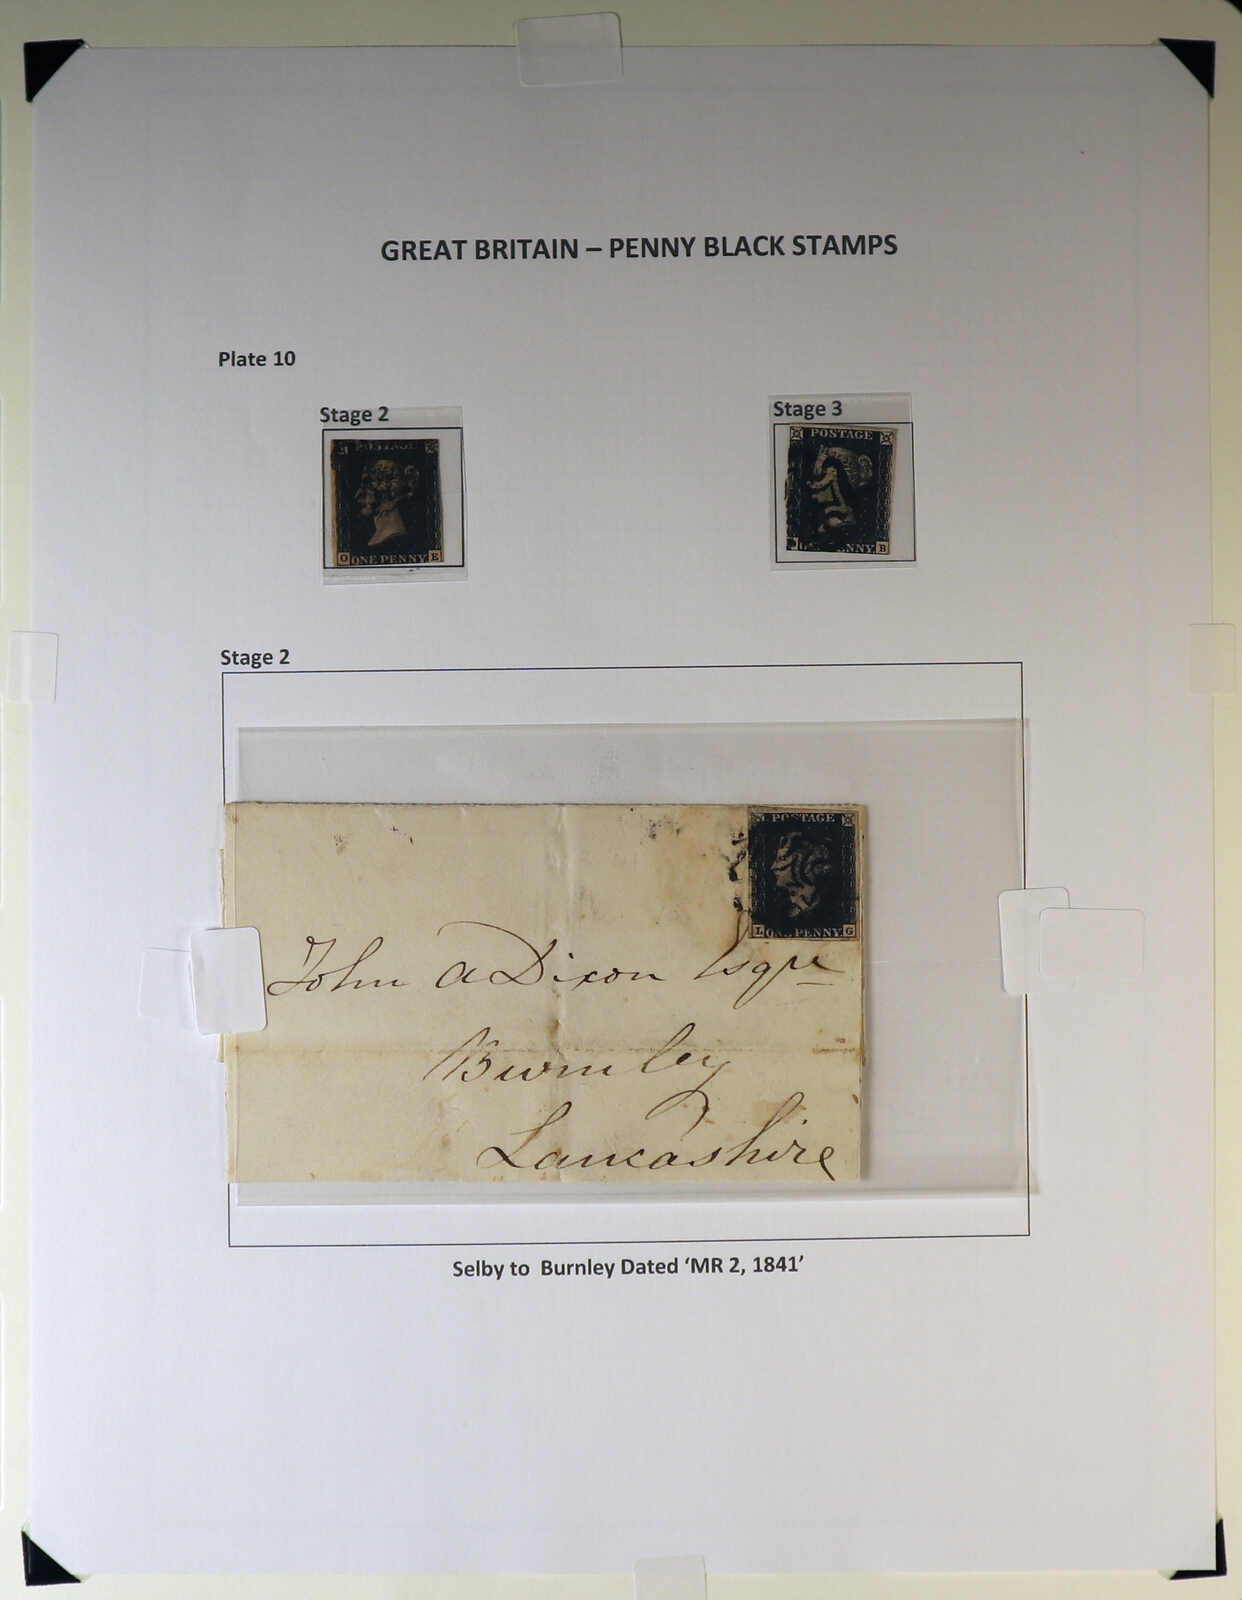 GREAT BRITAIN – PENNY BLACK STAMPS
Plate 10
Stage 2
Stage 3
POSTAGE
O ONE PENNY E
POSTAGE
B
Stage 2
POSTAGE
L ONE PENNY G
John A Dixon Esqre
Burnley
Lancashire
Selby to Burnley Dated ‘MR 2, 1841’